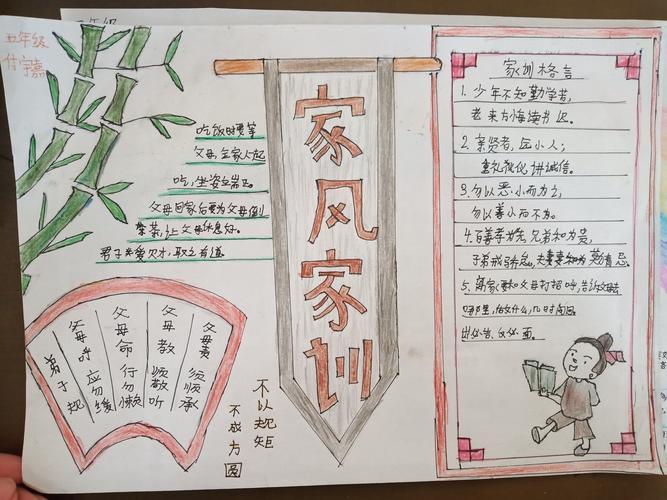 五年级
家风家训
吃饭时要等
父母,全家人一起
吃,坐姿要端正。
父母回家后要为父母倒
茶,让父母休息好。
君子爱财,取之有道
父母责 须顺承
父母教 须敬听
父母命 行勿懒
父母呼 应勿缓
弟子规
不以规矩
不成方圆
家训格言
1. 少年不知勤学苦,
老来方悔读书迟。
2. 亲贤者,远小人;
重礼仪,讲诚信。
3. 勿以恶小而为之,
勿以善小而不为。
4. 百善孝为先,兄弟和为贵,
子弟戒骄怠,夫妻
5. 离家要和父母打招呼,告诉父母去
哪里,做什么,几时